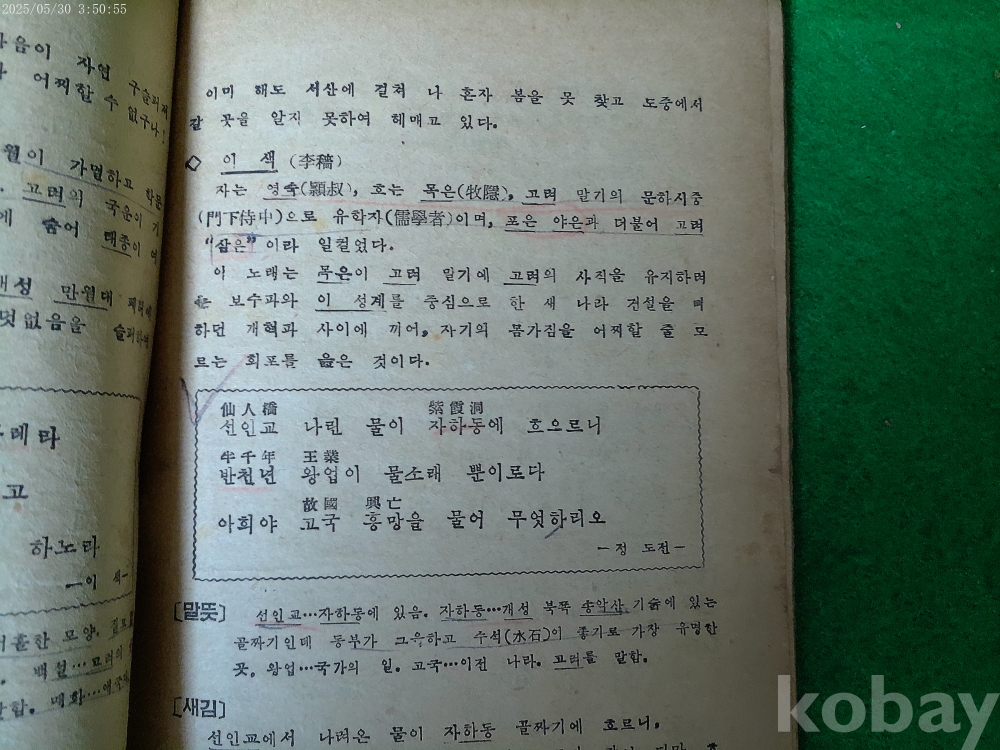 2025/05/30 3:50:55
마음이 자연 구슬퍼져
어찌할 수 없구나!
월이 가멸하고 학문
고려의 국운이 기
에 숨어 태종이 여
개성 만월대
멋없음을 슬퍼하며
두레타
고
하노라
—이 색—
백설…고려의
매화…
이미 해도 서산에 걸쳐 나 혼자 봄을 못 찾고 도중에서
갈 곳을 알지 못하여 헤매고 있다.
◇ 이 색 (李穡)
자는 영숙(穎叔), 호는 목은(牧隱), 고려 말기의 문하시중
(門下侍中)으로 유학자(儒學者)이며, 포은 야은과 더불어 고려
“삼은”이라 일컬었다.
이 노래는 목은이 고려 말기에 고려의 사직을 유지하려
는 보수파와 이 성계를 중심으로 한 새 나라 건설을 꾀
하던 개혁파 사이에 끼어, 자기의 몸가짐을 어찌할 줄 모
르는 회포를 읊은 것이다.
仙人橋 紫霞洞
선인교 나린 물이 자하동에 흐으르니
半千年 王業
반천년 왕업이 물소래 뿐이로다
故國 興亡
아희야 고국 흥망을 물어 무엇하리오
—정 도전—
[말뜻] 선인교…자하동에 있음. 자하동…개성 북쪽 송악산 기슭에 있는
골짜기인데 동부가 그윽하고 수석(水石)이 좋기로 가장 유명한
곳. 왕업…국가의 일. 고국…이전 나라. 고려를 말함.
[새김]
선인교에서 나려온 물이 자하동 골짜기에 흐르니,
kobay